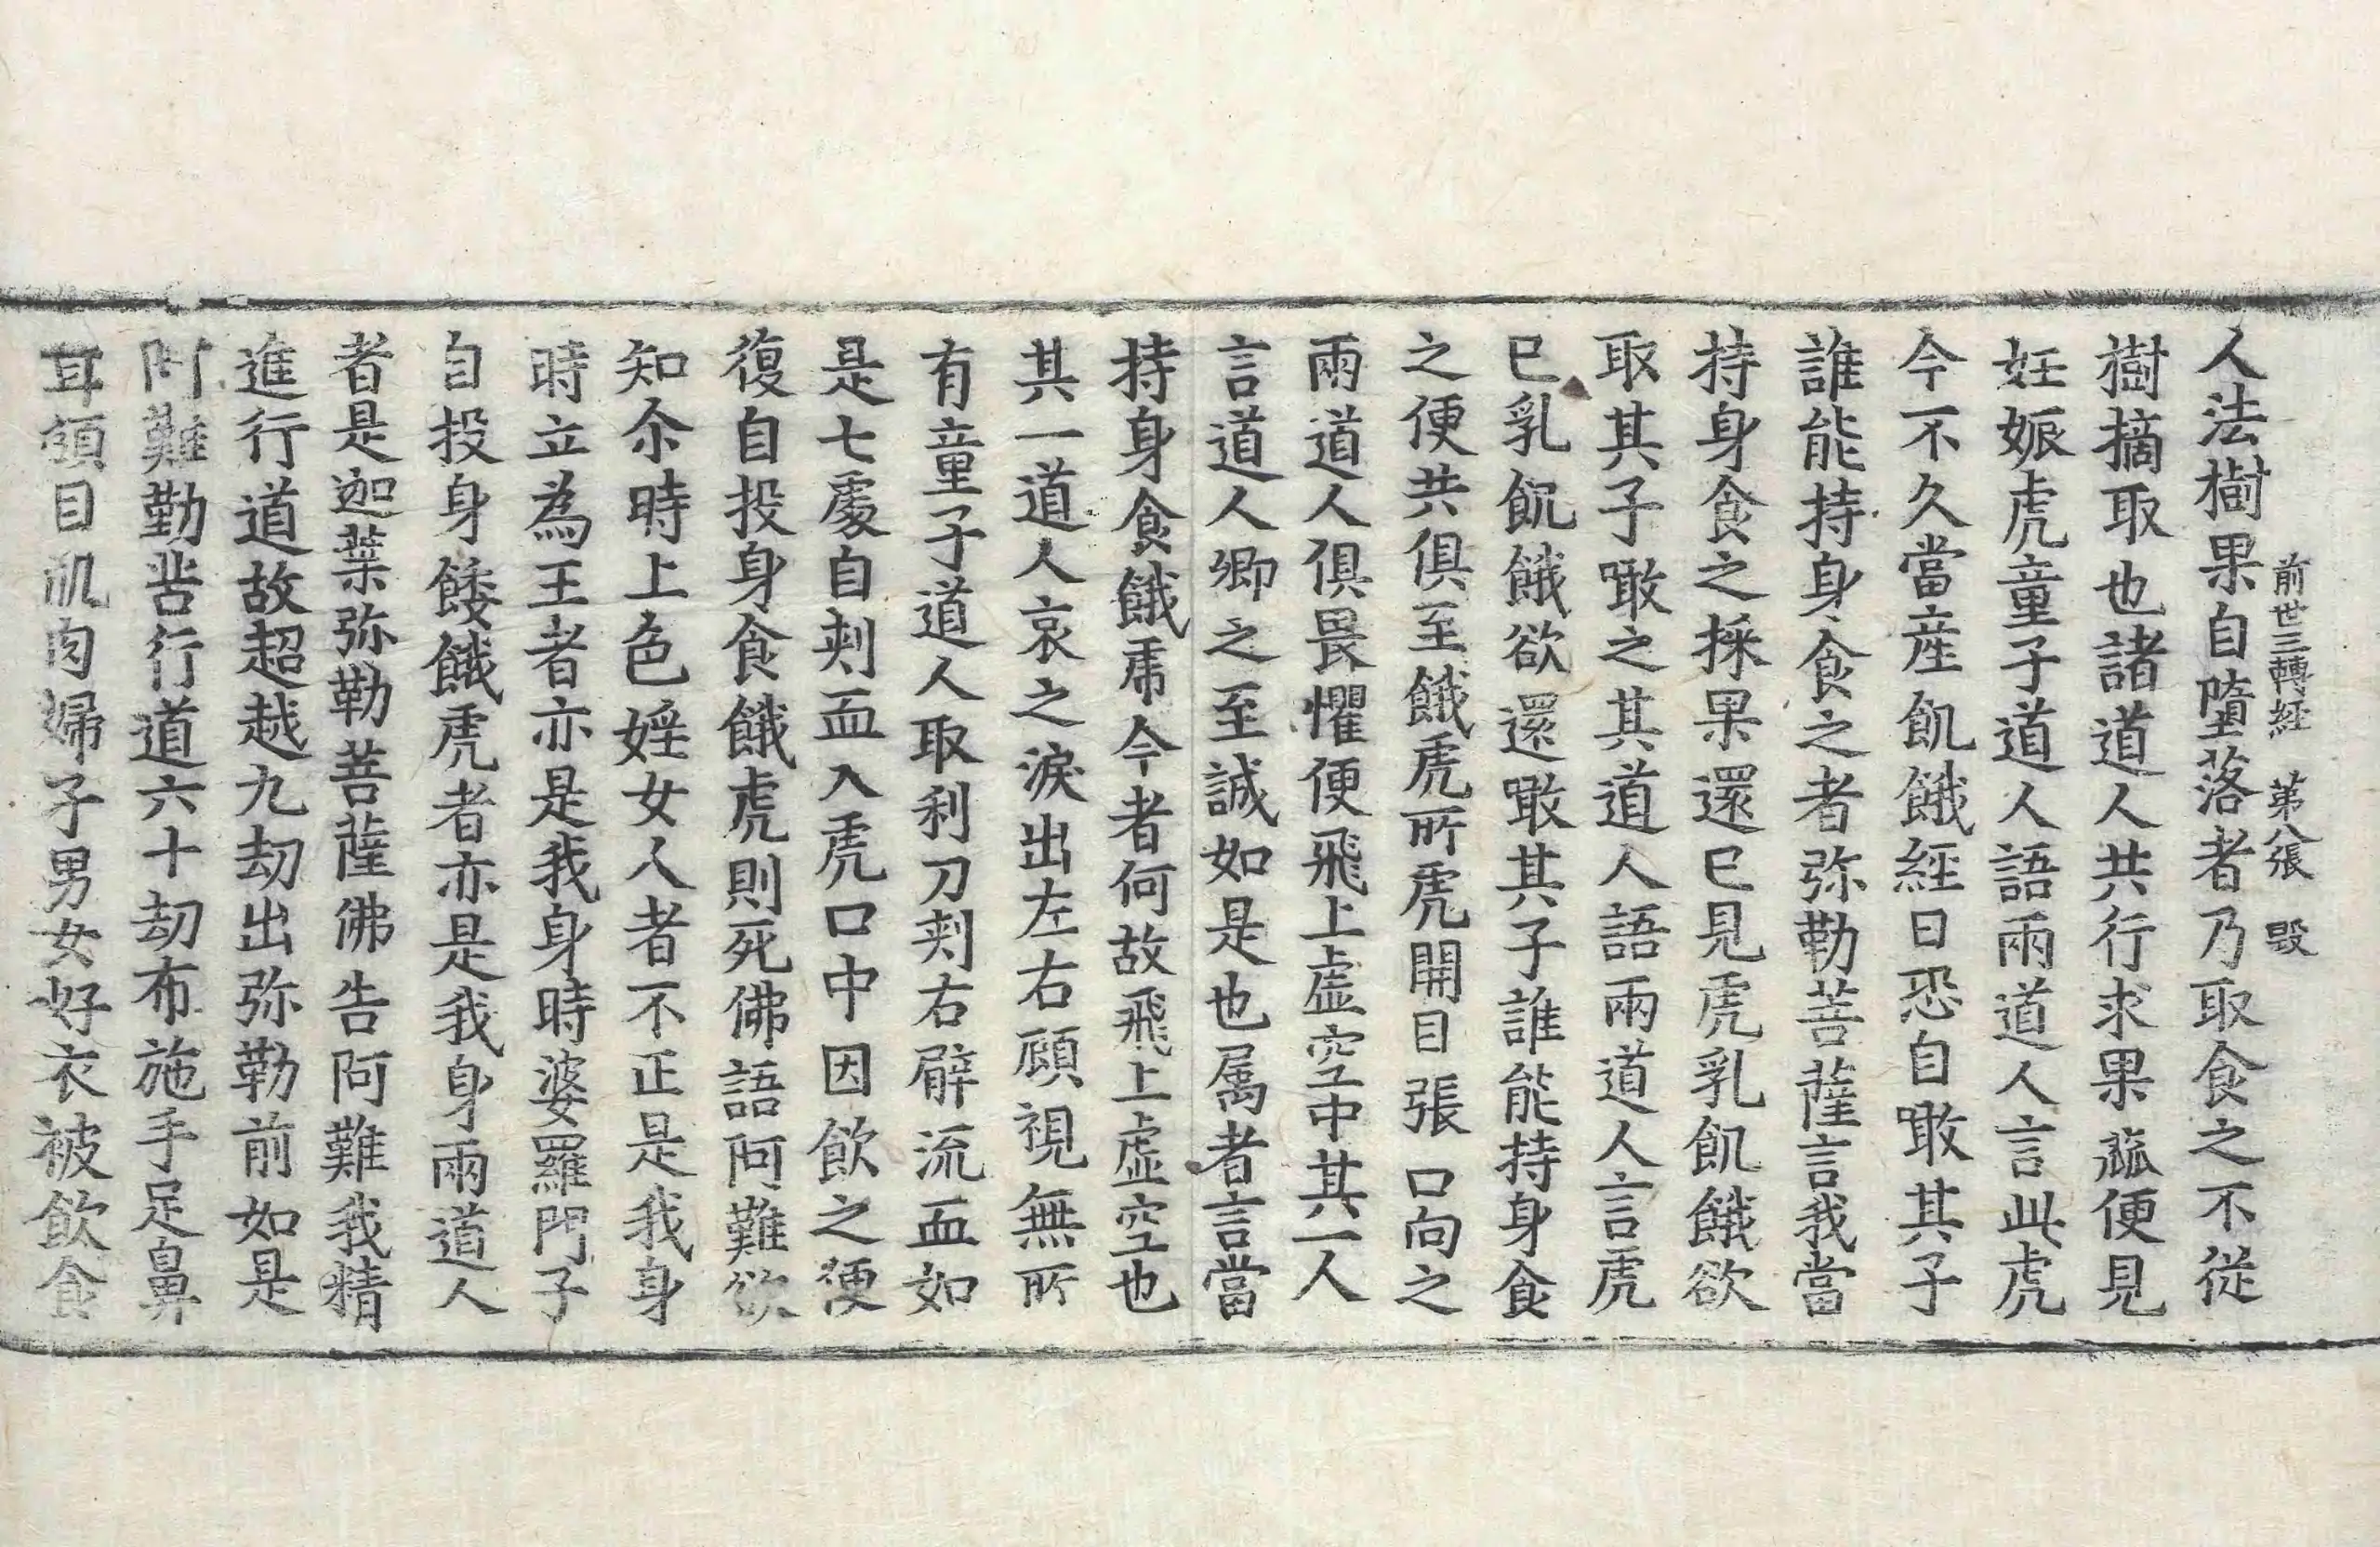 前世三轉經 第八張 毀
人法樹果自墮落者乃取食之不從
樹摘取也諸道人共行求果蓏便見
妊娠虎童子道人語兩道人言此虎
今不久當産飢餓經日恐自噉其子
誰能持身食之者弥勒菩薩言我當
持身食之採果還已見虎乳飢餓欲
取其子噉之其道人語兩道人言虎
已乳飢餓欲還噉其子誰能持身食
之便共俱至餓虎所虎開目張口向之
兩道人俱畏懼便飛上虛空中其一人
言道人卿之至誠如是也属者言當
持身食餓虎今者何故飛上虛空也
其一道人哀之淚出左右顧視無所
有童子道人取利刀刾右臂流血如
是七處自刾血入虎口中因飲之便
復自投身食餓虎則死佛語阿難欲
知尒時上色婬女人者不正是我身
時立為王者亦是我身時婆羅門子
自投身餧餓虎者亦是我身兩道人
者是迦葉弥勒菩薩佛告阿難我精
進行道故超越九劫出弥勒前如是
阿難勤苦行道六十劫布施手足鼻
耳頭目肌肉婦子男女好衣被飲食